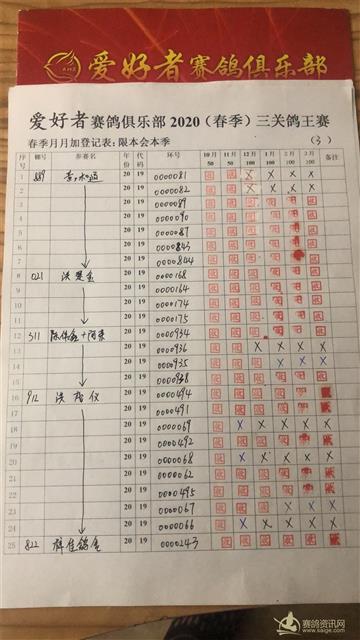 爱好者赛鸽俱乐部
爱好者赛鸽俱乐部2020（春季）三关鸽王赛
春季月月加登记表：限本会本季 （3）
序号 棚号 参赛名 年份 代码 环号 10月50 11月50 12月100 1月100 2月100 3月100 备注
1 20 19 0000081 X X X X
2 20 19 0000082 X X X X
3 20 19 0000089
4 20 19 0000090
5 20 19 0000087
6 20 19 0000843
7 20 19 0000844
8 021 洪楚金 20 19 0000168
9 20 19 0000164
10 20 19 0000174
11 20 19 0000175
12 311 20 19 0000934
13 20 19 0000936 X X X X
14 20 19 0000935 X X X
15 20 19 0000938
16 912 洪 20 19 0000494
17 20 19 0000491
18 20 19 0000069 X X X X
19 20 19 0000492
20 20 19 0000068 X X X X
21 20 19 0000062
22 20 19 0000495
23 20 19 0000067 X X
24 20 19 0000066 X X X X
25 822 辉佳鸽舍 20 19 0000243
赛鸽资讯网
www.saige.com